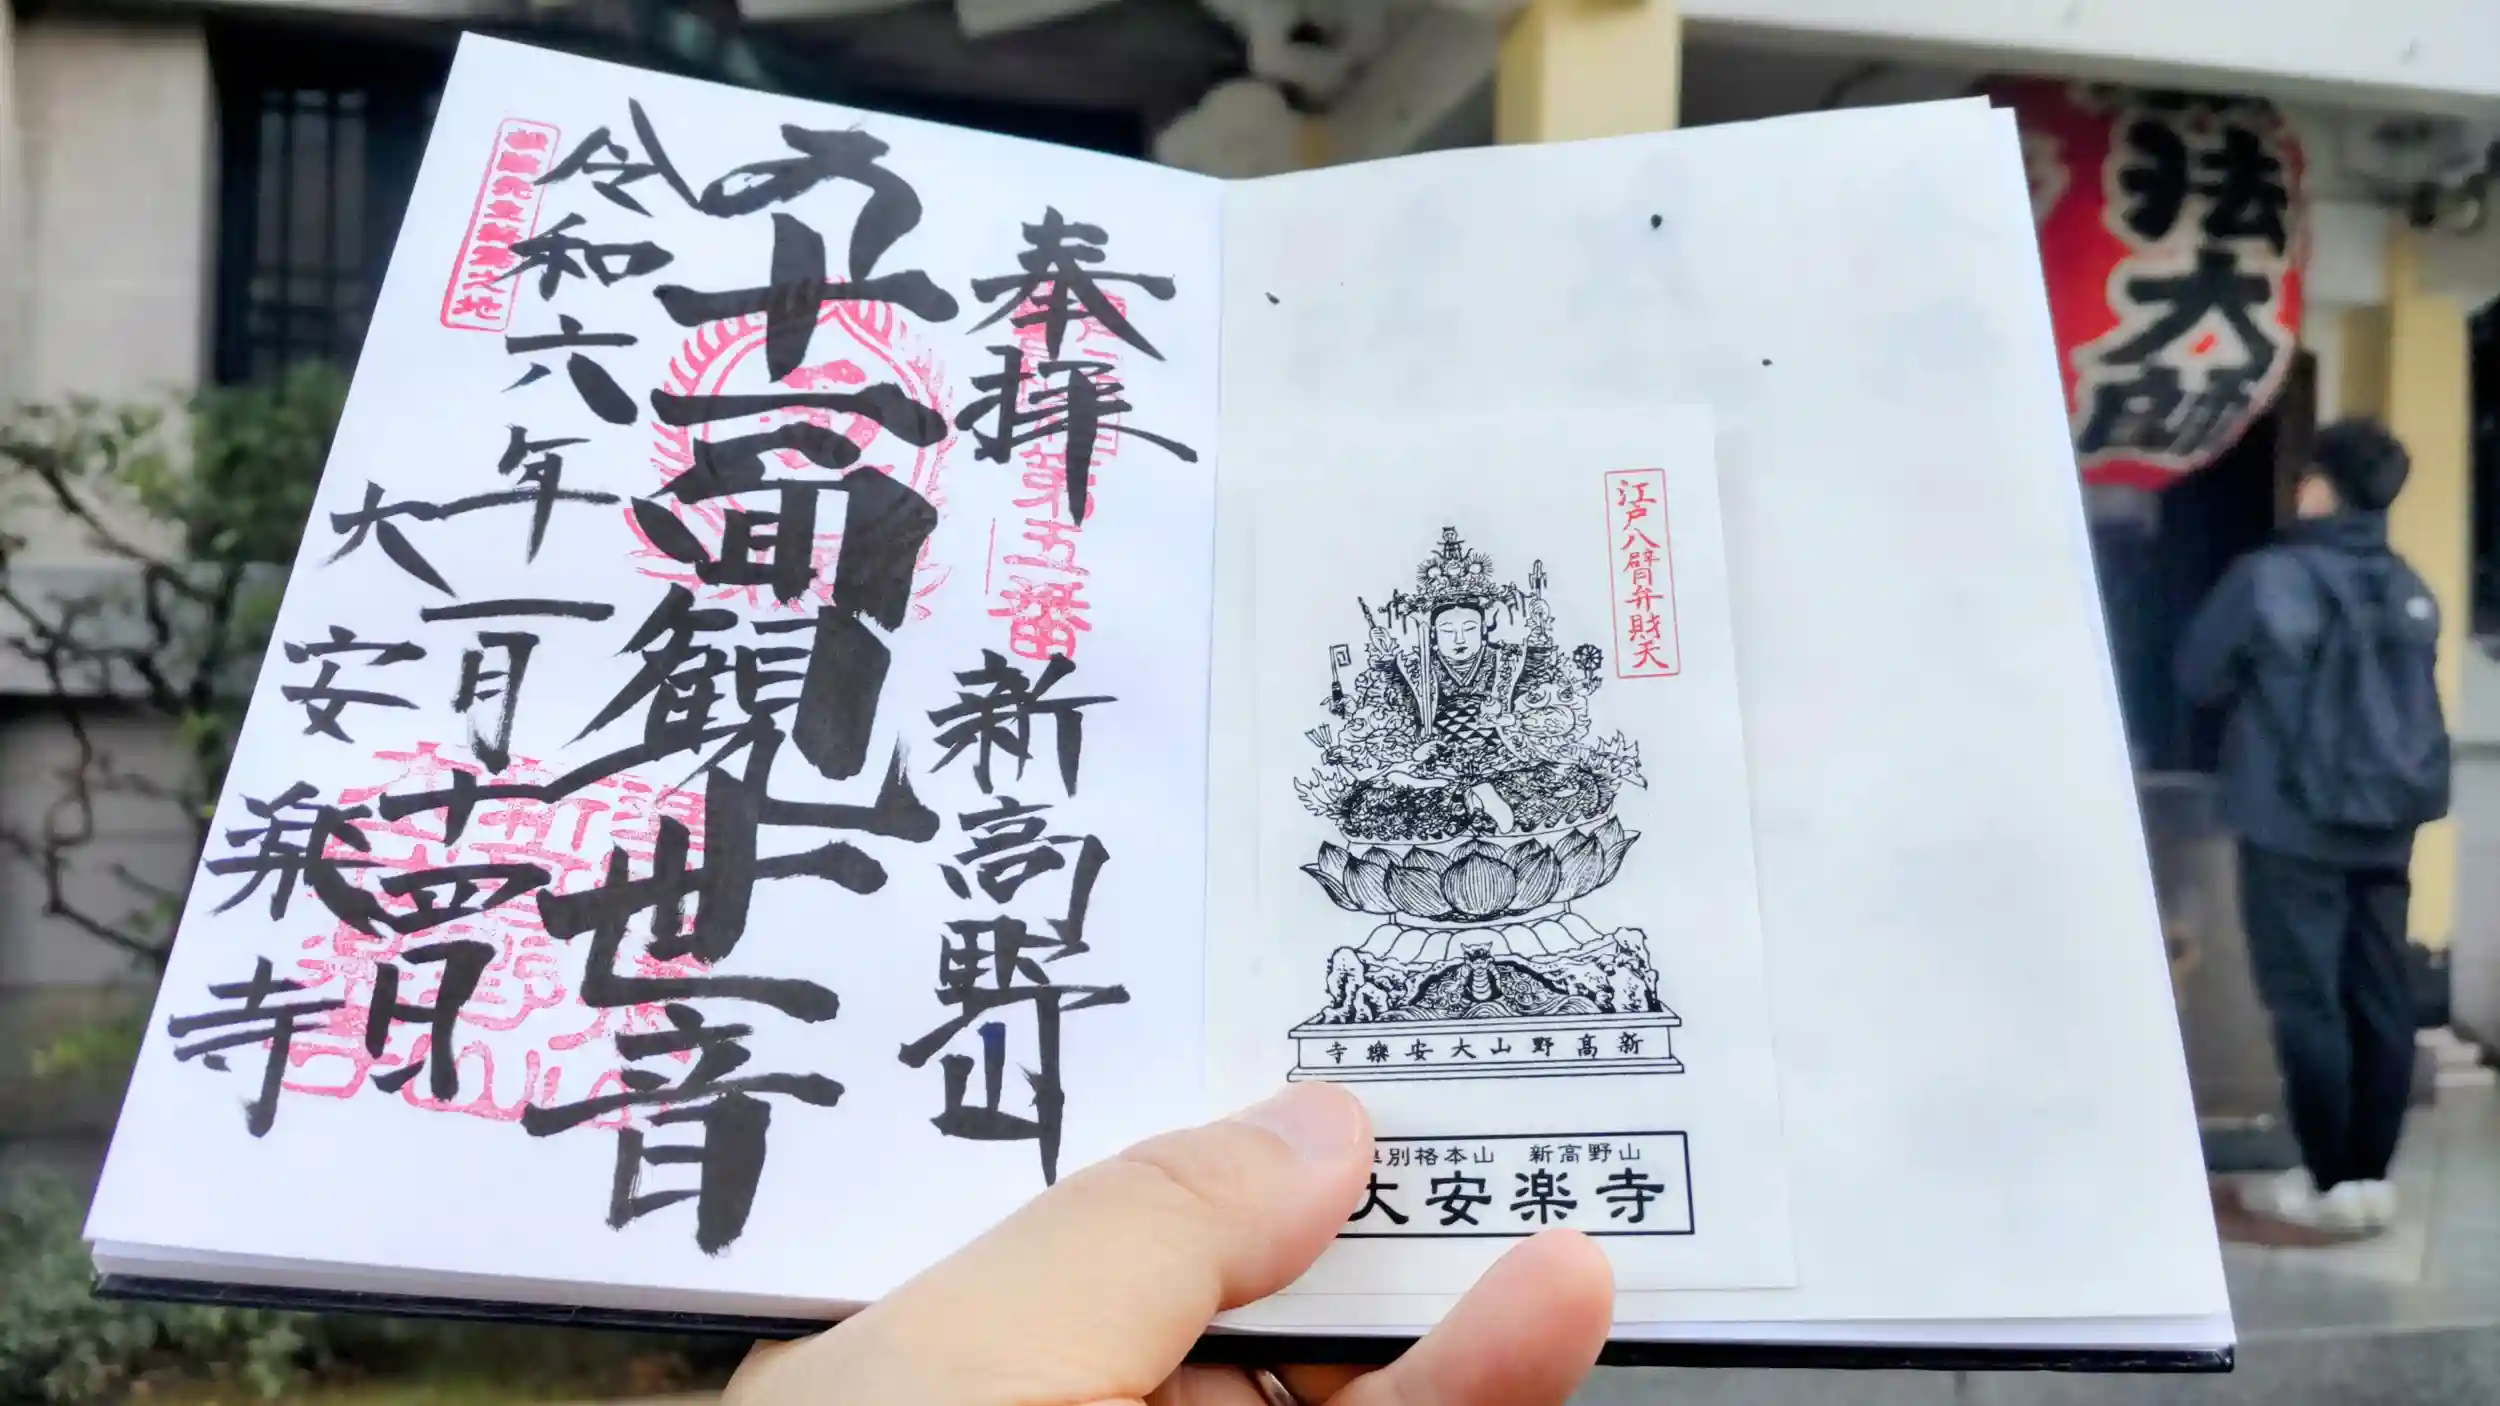 奉拝 新高野山
第五番
十一面観世音
令和六年一月十四日
大安楽寺
松陰先生終焉之地
江戸八臂弁財天
新高野山大安樂寺
別格本山 新高野山
大安楽寺
法大師